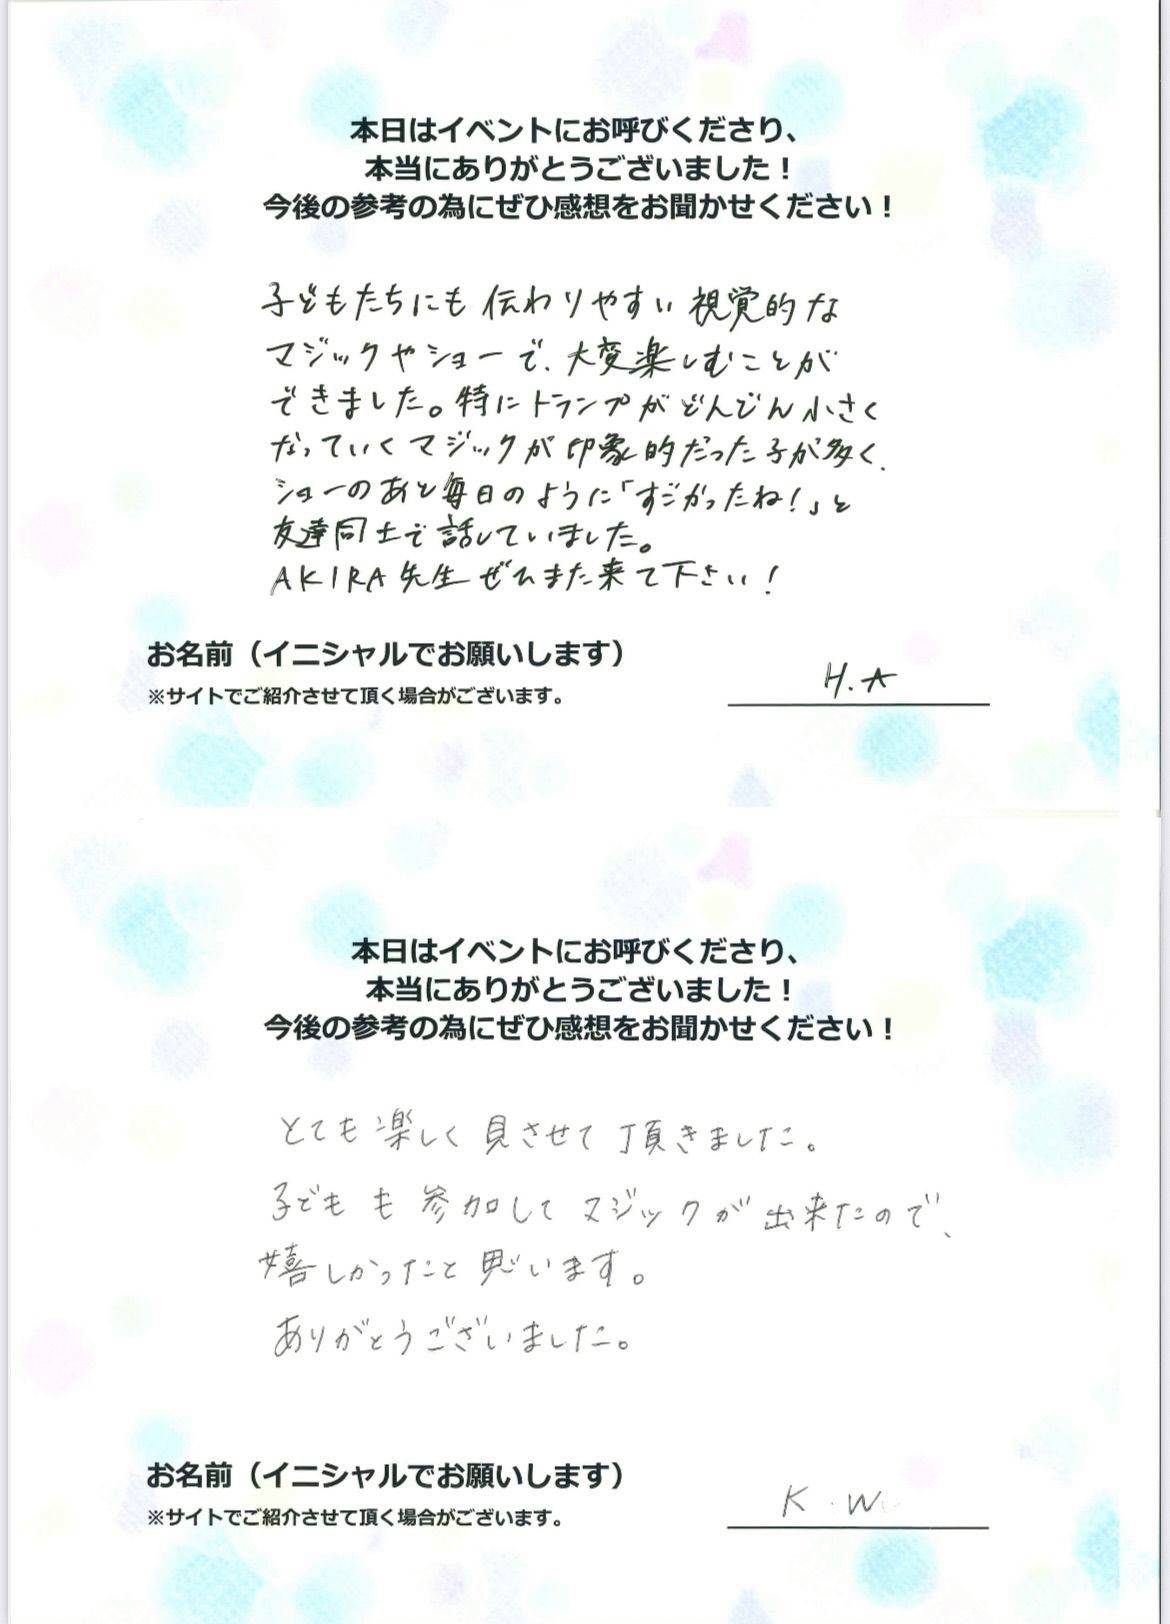 本日はイベントにお呼びくださり、
本当にありがとうございました！
今後の参考の為にぜひ感想をお聞かせください！
子どもたちにも伝わりやすい視覚的な
マジックやショーで、大変楽しむことが
できました。特にトランプがどんどん小さく
なっていくマジックが印象的だった子が多く、
ショーのあと毎日のように「すごかったね！」と
友達同士で話していました。
AKIRA先生ぜひまた来て下さい！
お名前（イニシャルでお願いします）
H.A
※サイトでご紹介させて頂く場合がございます。
本日はイベントにお呼びくださり、
本当にありがとうございました！
今後の参考の為にぜひ感想をお聞かせください！
とても楽しく見させて頂きました。
子どもも参加してマジックが出来たので、
嬉しかったと思います。
ありがとうございました。
お名前（イニシャルでお願いします）
K.W
※サイトでご紹介させて頂く場合がございます。